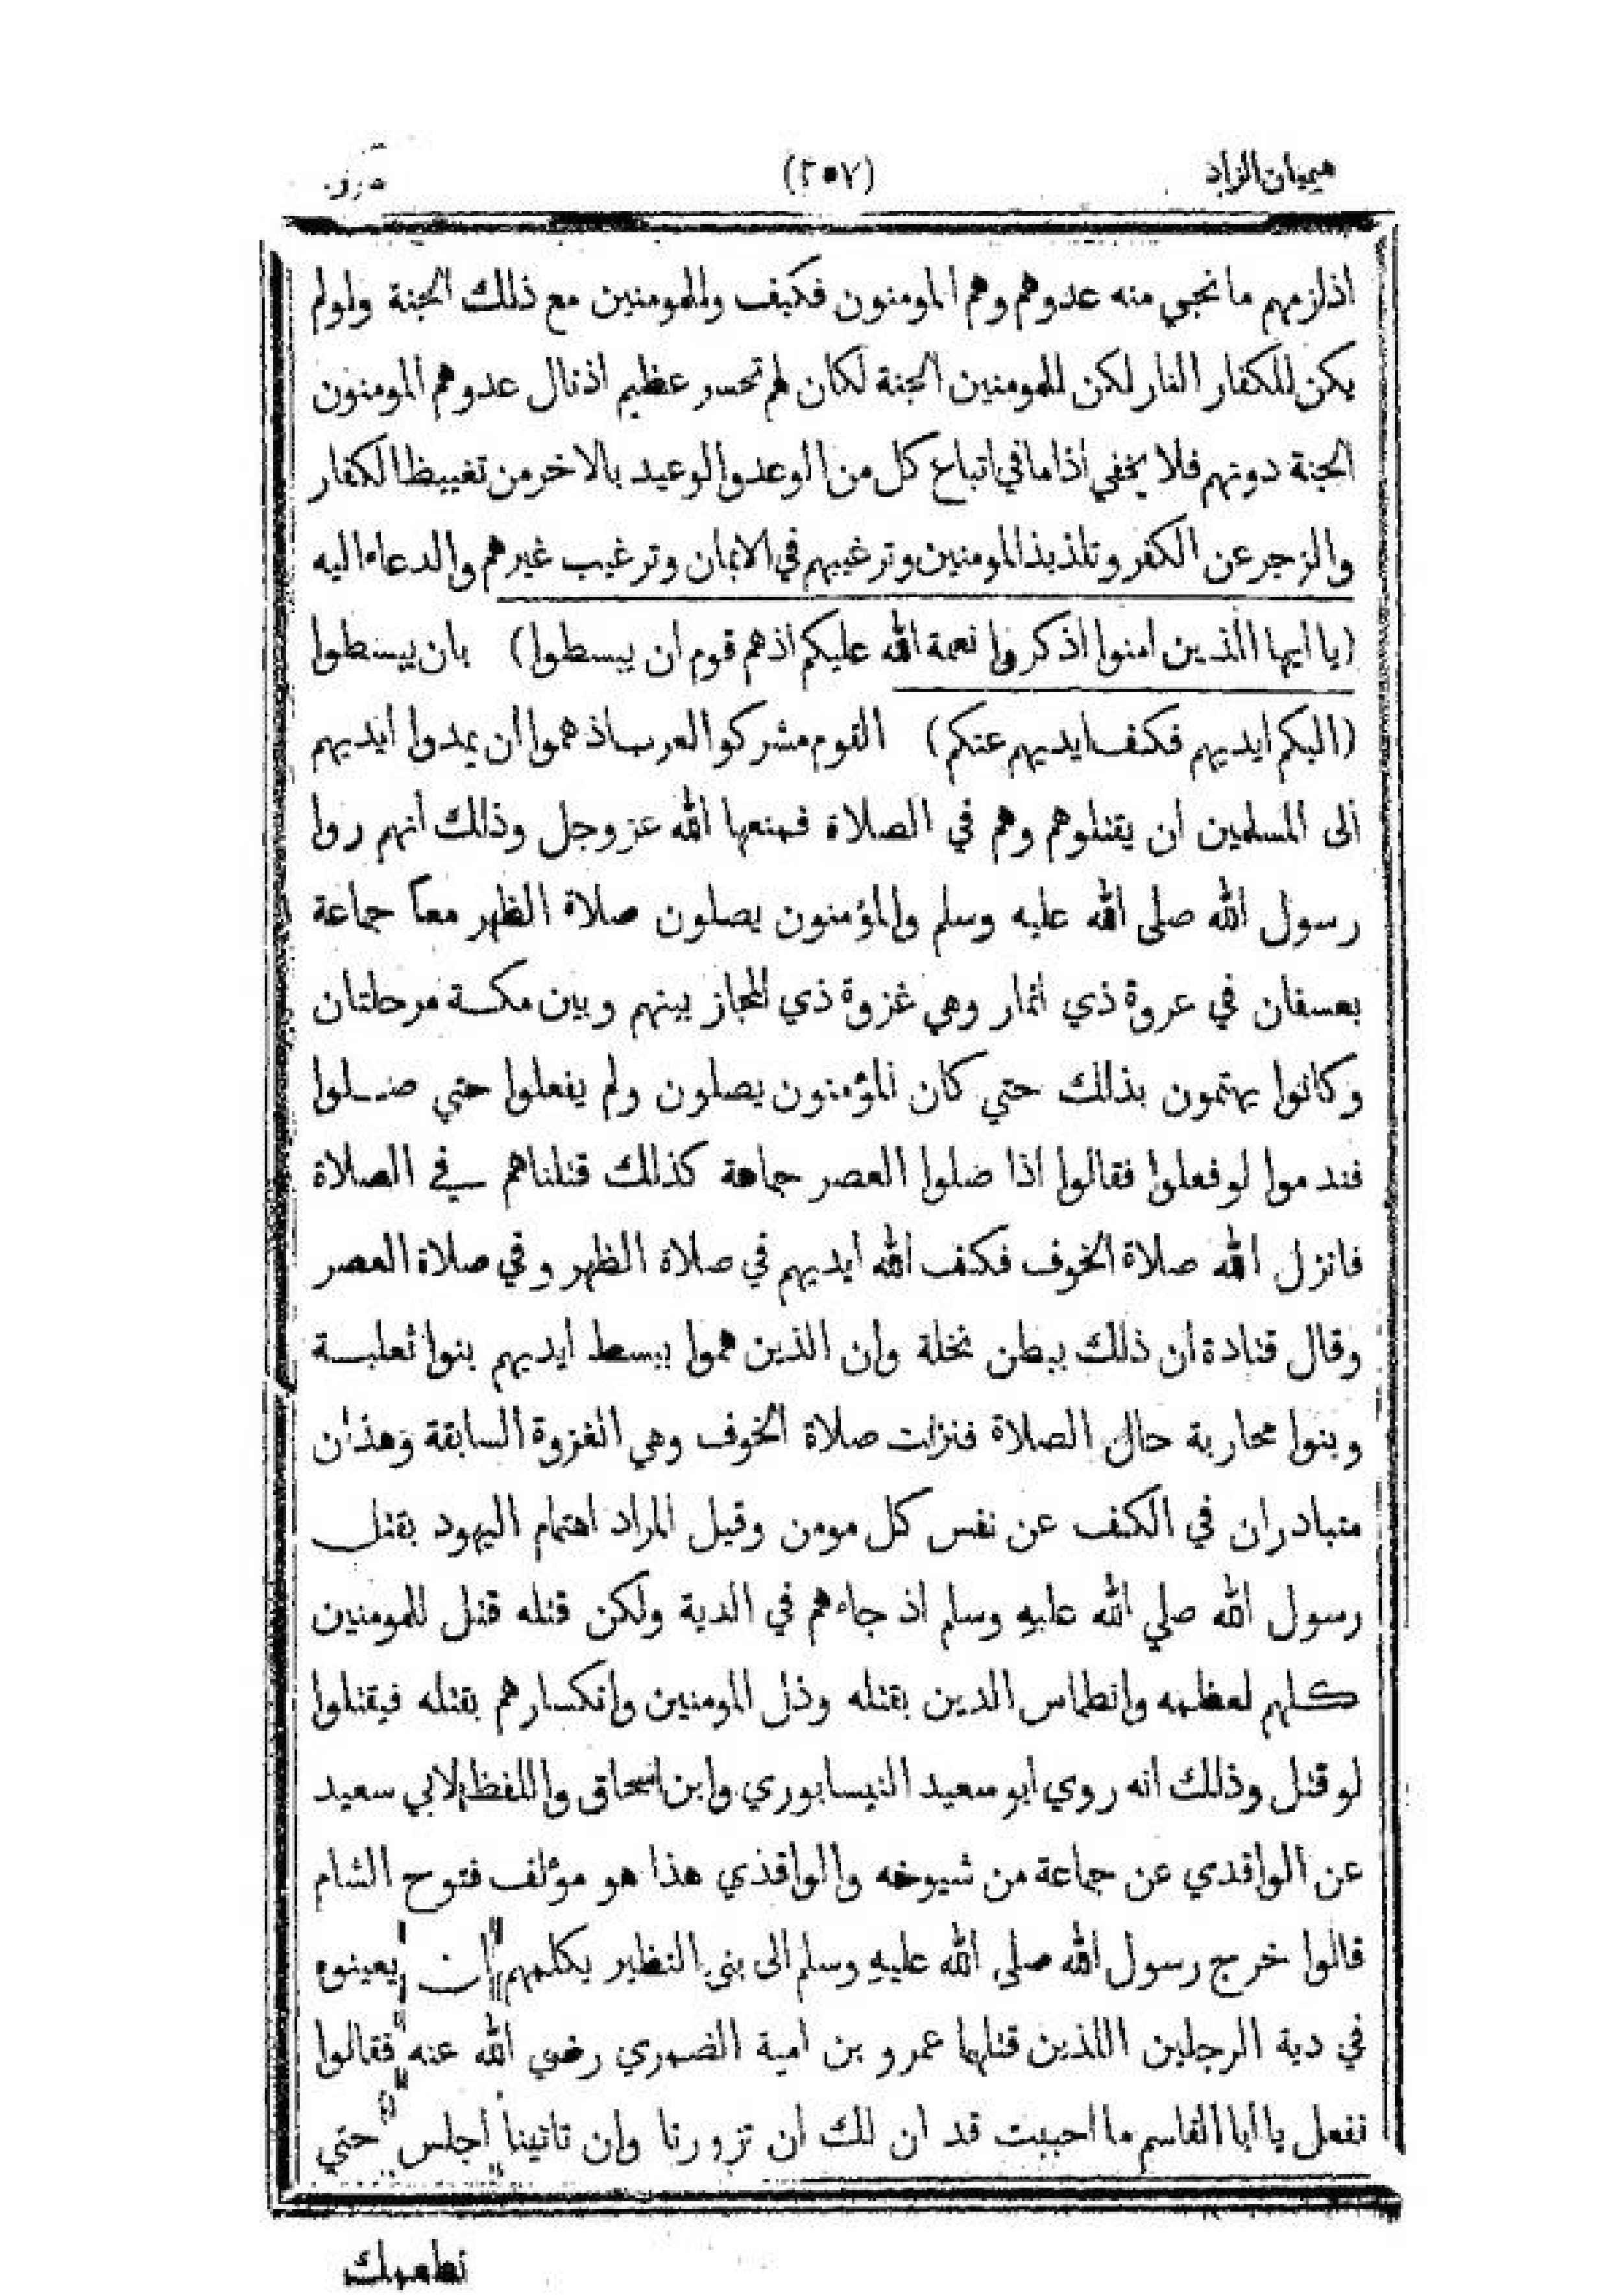 هيميان الزاد (٢٥٧)
اذلزمهم ما نجي منه عدوهم وهم المومنون فكيف وللمومنين مع ذلك الجنة ولولم
يكن للكفار النار لكن للمومنين الجنة لكان لهم تحسر عظيم اذنال عدوهم المومنون
الجنة دونهم فلا يخفي اذا ما في اتباع كل من الوعد والوعيد بالاخر من تغييظ الكفار
والزجر عن الكفر وتلذيذ المومنين وترغيبهم في الايمان وترغيب غيرهم والدعاء اليه
(يا ايها الذين امنوا اذكروا نعمة الله عليكم اذهم قوم ان يبسطوا) بان يبسطوا
(اليكم ايديهم فكف ايديهم عنكم) القوم مشركو العرب اذ هموا ان يمدوا ايديهم
الى المسلمين ان يقتلوهم وهم في الصلاة فمنعها الله عز وجل وذلك أنهم روا
رسول الله صلى الله عليه وسلم والمؤمنون يصلون صلاة الظهر معاً جماعة
بعسفان في عروة ذي انمار وهي غزوة ذي المجاز بينهم وبين مكة مرحلتان
وكانوا يهتمون بذلك حتي كان المؤمنون يصلون ولم يفعلوا حتي صلوا
فندموا لو فعلوا فقالوا اذا صلوا العصر جماعة كذلك قتلناهم في الصلاة
فانزل الله صلاة الخوف فكف الله ايديهم في صلاة الظهر وفي صلاة العصر
وقال قتادة ان ذلك ببطن نخلة وان الذين هموا ببسط ايديهم بنوا ثعلبة
وبنوا محاربة حال الصلاة فنزلت صلاة الخوف وهي الغزوة السابقة وهذان
متبادران في الكف عن نفس كل مومن وقيل المراد اهتمام اليهود بقتل
رسول الله صلي الله عليه وسلم اذ جاءهم في الدية ولكن قتله قتل للمومنين
كلهم لعظمه وانطماس الدين بقتله وذل المومنين وانكسارهم بقتله فيقتلوا
لو قتل وذلك انه روي ابو سعيد النيسابوري وابن اسحاق واللفظ لابي سعيد
عن الواقدي عن جماعة من شيوخه والواقذي هذا هو مؤلف فتوح الشام
قالوا خرج رسول الله صلى الله عليه وسلم الى بني النظير يكلمهم ان يعينوه
في دية الرجلين اللذين قتلهما عمرو بن امية الضمري رضي الله عنه فقالوا
نفعل يا أبا القاسم ما احببت قد ان لك ان تزورنا وان تاتينا أجلس حتي
نطعمك